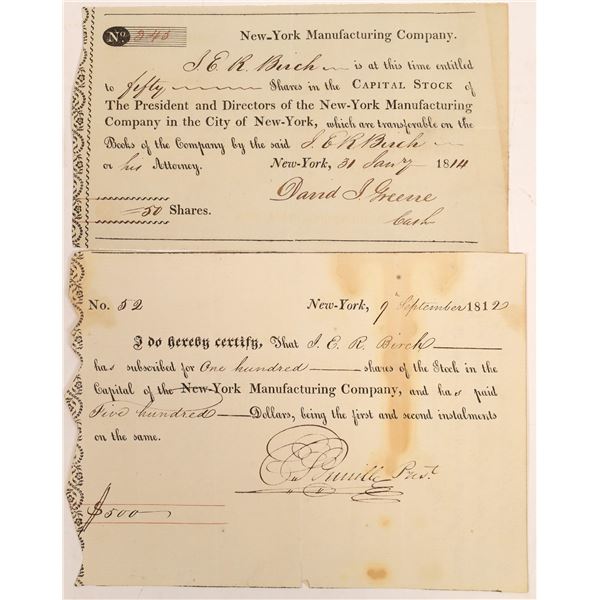 No. 343
New-York Manufacturing Company.
J. E. R. Birch is at this time entitled
to fifty Shares in the CAPITAL STOCK of
The President and Directors of the New-York Manufacturing
Company in the City of New-York, which are transferable on the
Books of the Company by the said J. E. R. Birch
or his Attorney. New-York, 31 Jany 1814
David I. Greene
Cash
50 Shares.
No. 52 New-York, 9th September 1812
I do hereby certify, That J. E. R. Birch
has subscribed for One hundred shares of the Stock in the
Capital of the New-York Manufacturing Company, and has paid
Five hundred Dollars, being the first and second instalments
on the same.
Prest.
$500